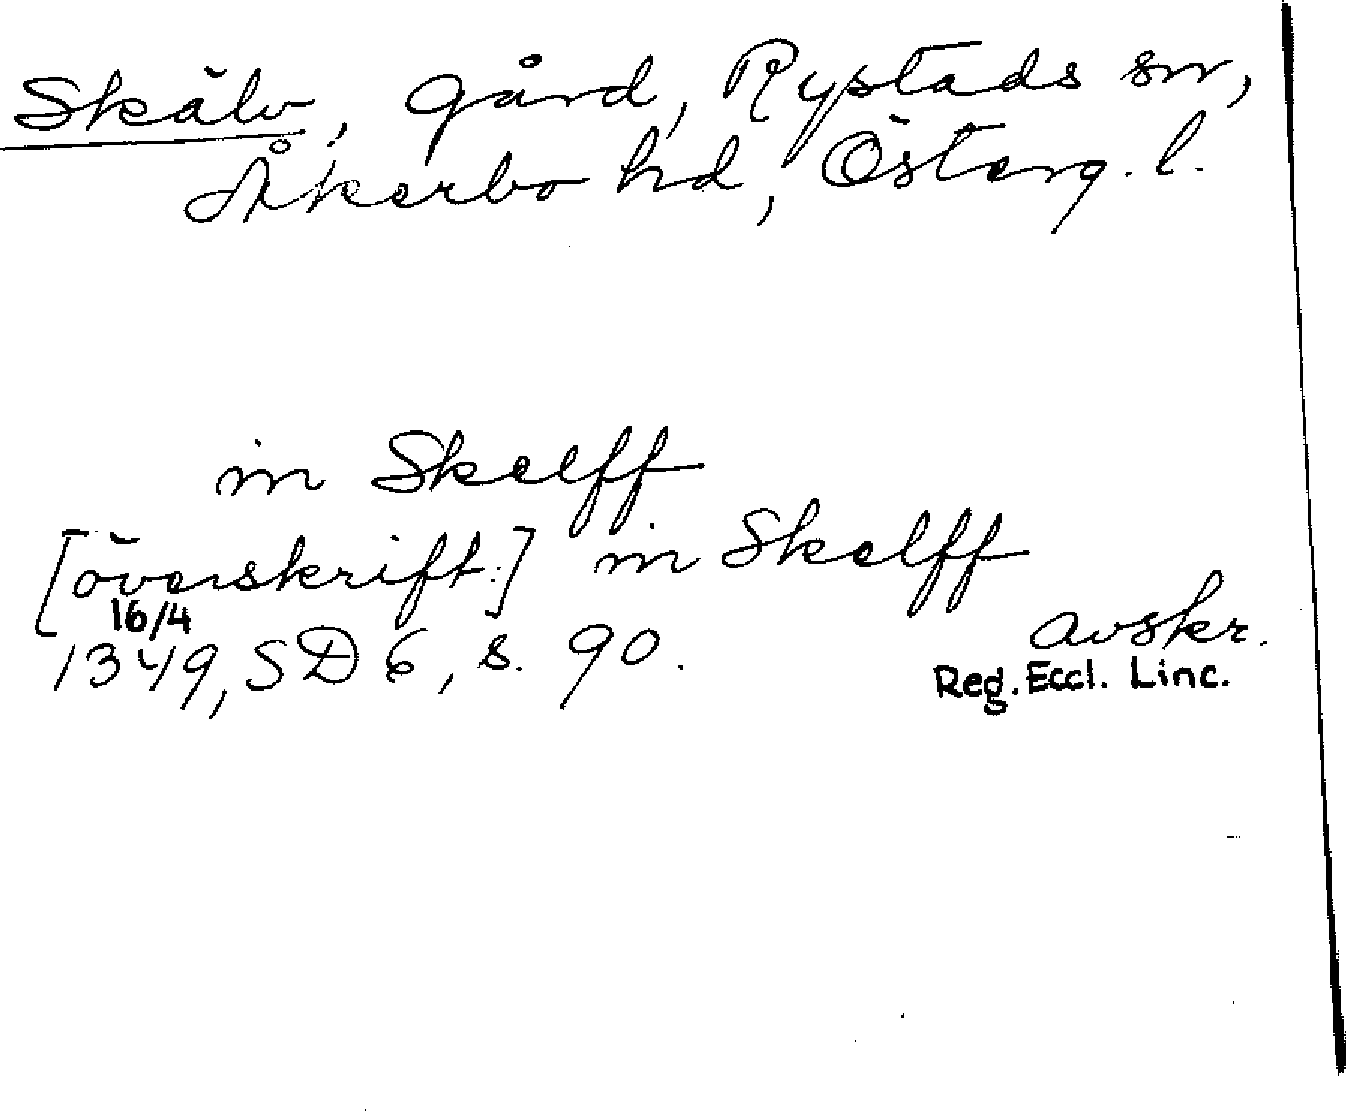 Skälv, gård, Rystads sn,
Åkerbo hd, Österg. l.
in Skelff
[överskrift:] in Skelff
16/4
1349, SD 6, s. 90.
avskr.
Reg. Eccl. Linc.